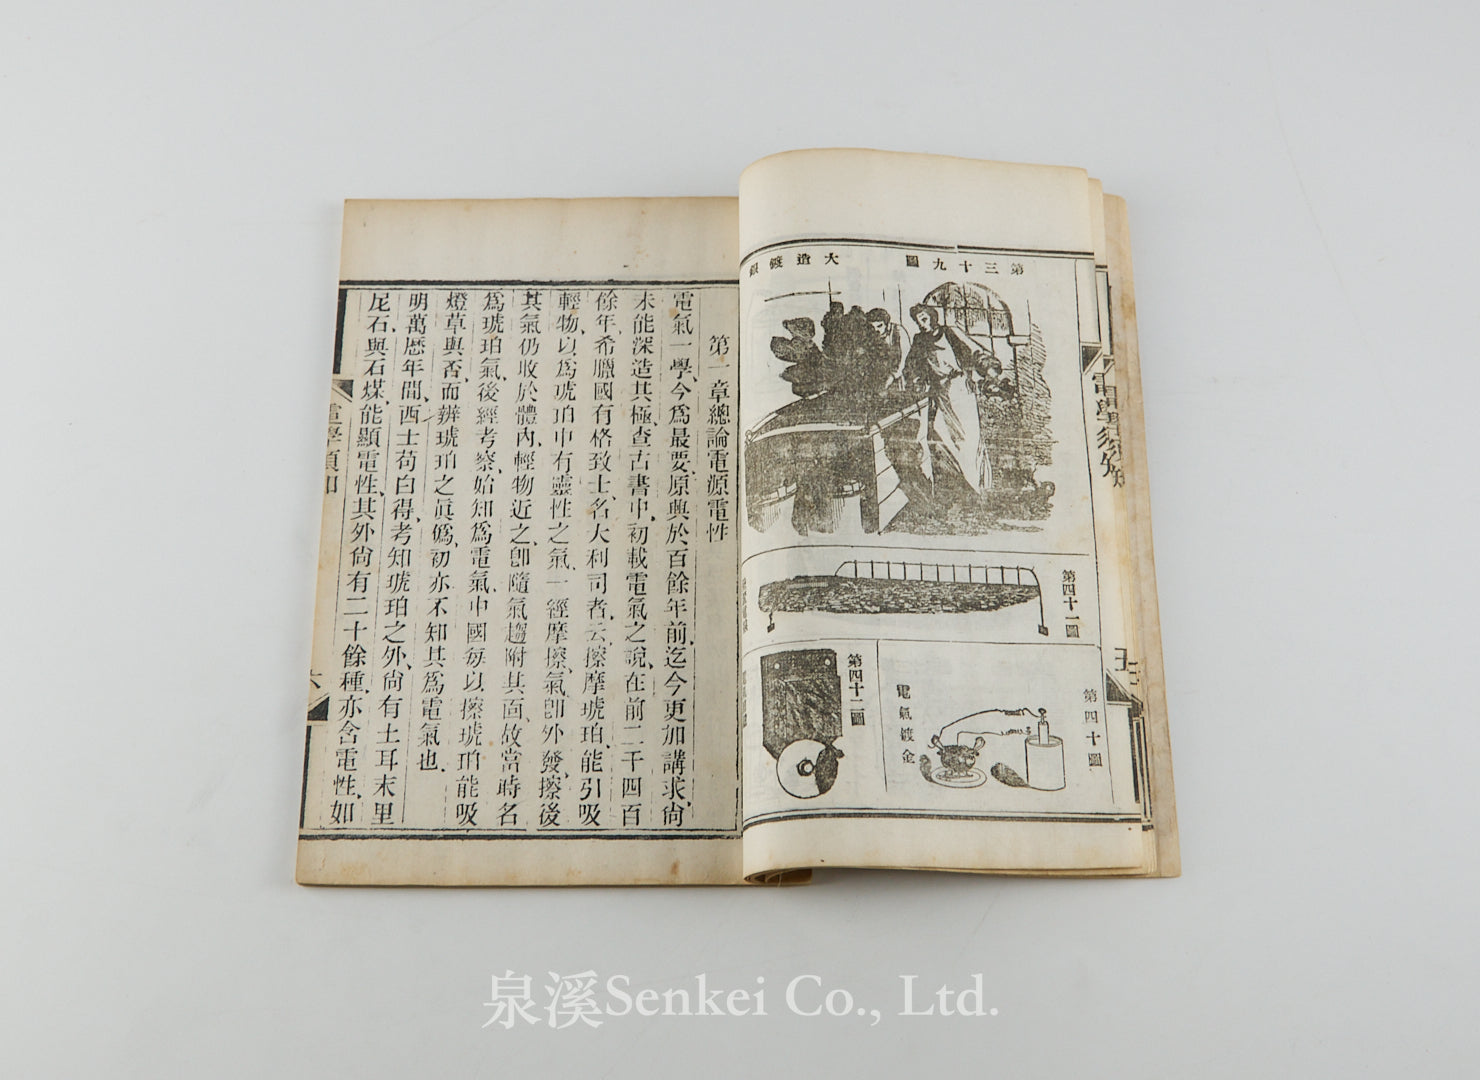 第三十九圖　大造鍍銀
第四十一圖
第四十圖
電氣鍍金
第四十二圖
電學須知
五
第一章總論電源電性
電氣一學、今爲最要、原興於百餘年前、迄今更加講求、尙
未能深造其極、查古書中、初載電氣之說、在前二千四百
餘年、希臘國有格致士、名大利司者、云、擦摩琥珀、能引吸
輕物、以爲琥珀中有靈性之氣、一經摩擦、氣卽外發、擦後
其氣仍收於體內、輕物近之、卽隨氣趨附其面、故當時名
爲琥珀氣、後經考察、始知爲電氣、中國每以擦琥珀能吸
燈草與否、而辨琥珀之眞僞、初亦不知其爲電氣也、
明萬曆年間、西士苟白得、考知琥珀之外、尙有土耳末里
尼石、與石煤、能顯電性、其外尙有二十餘種、亦含電性、如
電學須知
六
泉溪Senkei Co., Ltd.